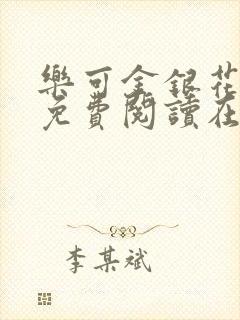 樂可金銀花
免費閱讀在
李某斌